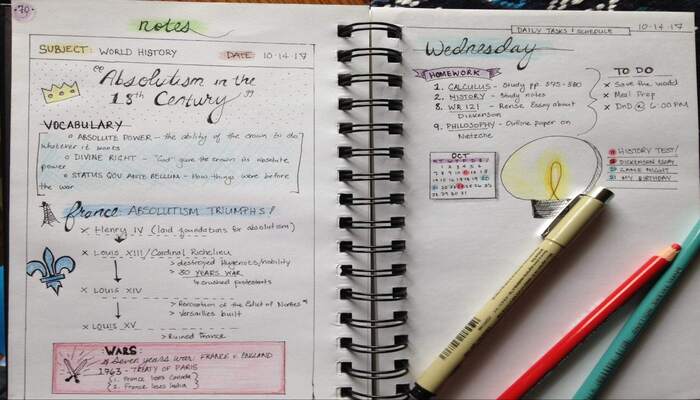 70
notes
SUBJECT: WORLD HISTORY DATE: 10-14-17
"Absolutism in the
18th Century"
VOCABULARY
ABSOLUTE POWER - the ability of the crown to do
whatever it wants
DIVINE RIGHT - "God" gave the crown its absolute
power
STATUS QOU ANTE BELLUM - How things were before
the war
france: ABSOLUTISM TRIUMPHS!
x Henry IV (laid foundations for absolutism)
x Louis XIII/Cardinal Richelieu
> destroyed Hugenots/nobility
> 30 YEARS WAR
crushed protestants
x LOUIS XIV
> Revocation of the Edict of Nantes
> Versailles built
x LOUIS XV
> Ruined France
WARS:
Seven years war: FRANCE v. ENGLAND
1763 - TREATY OF PARIS
1. France loses Canada
2. France loses India
DAILY TASKS & SCHEDULE 10-14-17
Wednesday
HOMEWORK
1. CALCULUS - Study pp. 575-580
2. HISTORY - Study notes
8. WR 121 - Revise Essay about
Dickenson
9. PHILOSOPHY - Outline paper on
Nietzche
TO DO
x Save the world
x Meal Prep
x DnD @ 6:00 PM
OCT
HISTORY TEST!
DICKENSON ESSAY
GAME NIGHT
MY BIRTHDAY